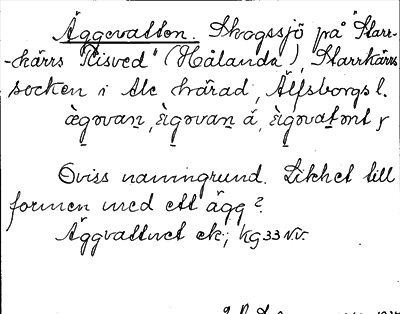 Äggevatten. Skogssjö på "Starr-
-kärrs Risved" (Hålanda), Starrkärrs
socken i Ale härad, Älfsborgs l.
ægovan, ìgovan å, ìgovatont
Oviss namngrund. Likhet till
formen med ett ägg?
Äggvattnet ek; kg 33 N.V.